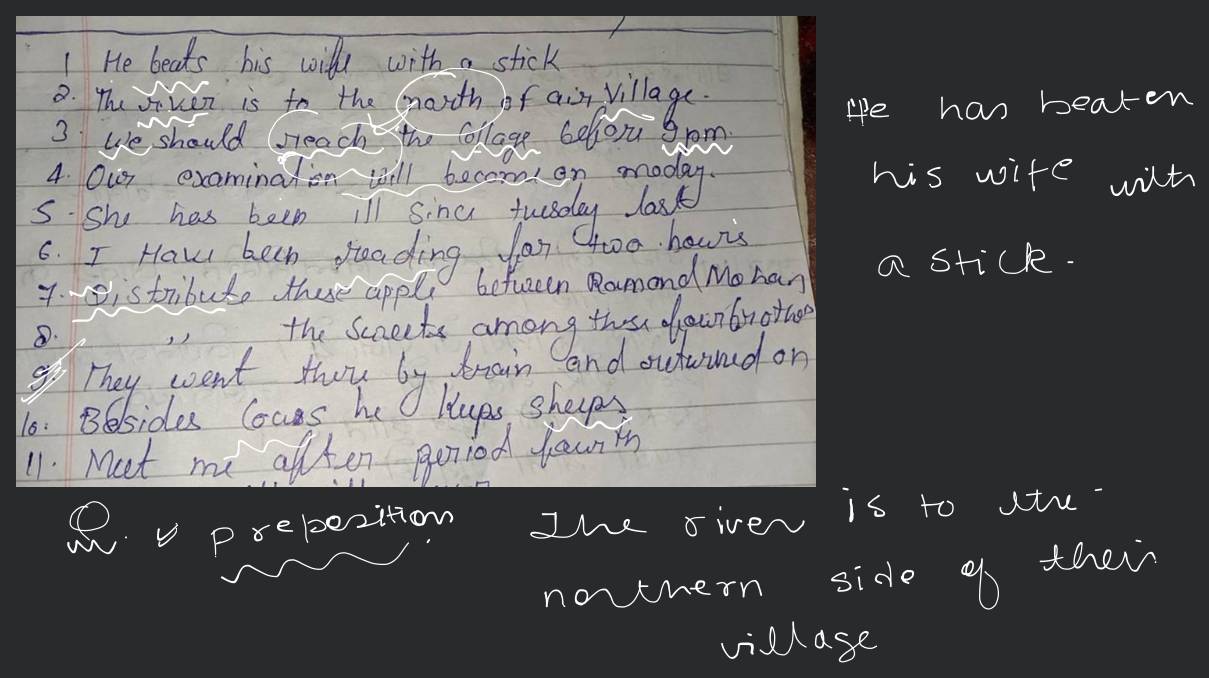 1 He beats his wife with a stick
2. The river is to the north of air village.
3 We should reach the collage before 9pm.
4. Our examination will become on moday.
5. She has been ill since tuesday last
6. I Have been reading for two hours
7. Distribute these apple between Ram and Mohan
8. ,, the sweets among these four brother
9. They went there by train and returned on
10. Besides Cows he keeps sheeps
11. Meet me after period fourth
He has beaten
his wife with
a stick.
Q. preposition
The river is to the
northern side of their
village